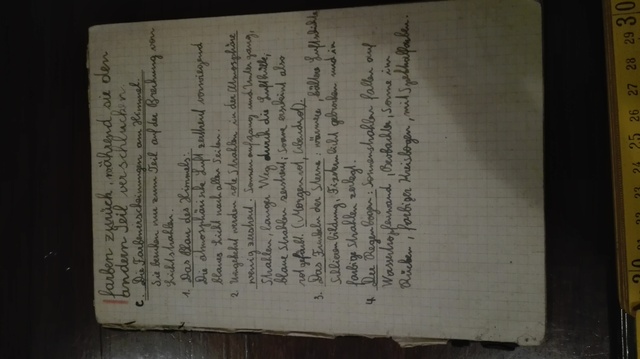 farben zurück, während sie den
anderen Teil verschlucken.
c. Die Farbenerscheinungen am Himmel.
Sie beruhen nur zum Teil auf der Brechung von
Lichtstrahlen.
1. Das Blau des Himmels:
Die atmosphärische Luft zerstreut vorwiegend
blaues Licht nach allen Seiten.
2. Umgekehrt werden rote Strahlen in der Atmosphäre
wenig zerstreut. Sonnenaufgang und Untergang,
Strahlen, langer Weg durch die Lufthülle,
blaue Strahlen zerstreut, Sonne erscheint also
rot gefärbt (Morgenrot, Abendrot).
3. Das Funkeln der Sterne: wärmere, kältere Luftschichten
Schlierenbildung, Fixsternlicht gebrochen und in
farbige Strahlen zerlegt.
4. Der Regenbogen: Sonnenstrahlen fallen auf
Wassertropfen, Beobachter, Sonne im
Rücken, farbiger Kreisbogen, mit Spektralfarben.
29 30